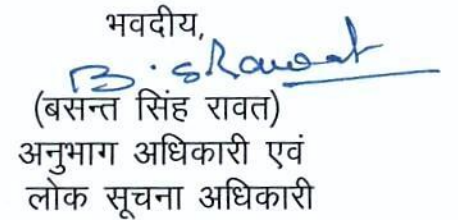 भवदीय,
B.SRawat
(बसन्त सिंह रावत)
अनुभाग अधिकारी एवं
लोक सूचना अधिकारी